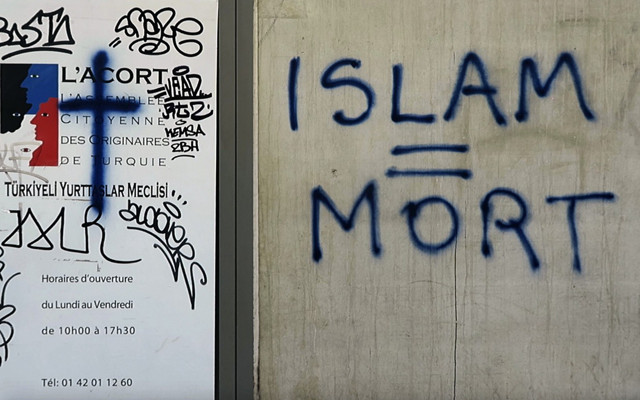 L'ACORT
L'ASSEMBLÉE
CITOYENNE
DES ORIGINAIRES
DE TURQUIE
TÜRKİYELİ YURTTAŞLAR MECLİSİ
Horaires d'ouverture
du Lundi au Vendredi
de 10h00 à 17h30
Tél: 01 42 01 12 60
ISLAM
=
MORT